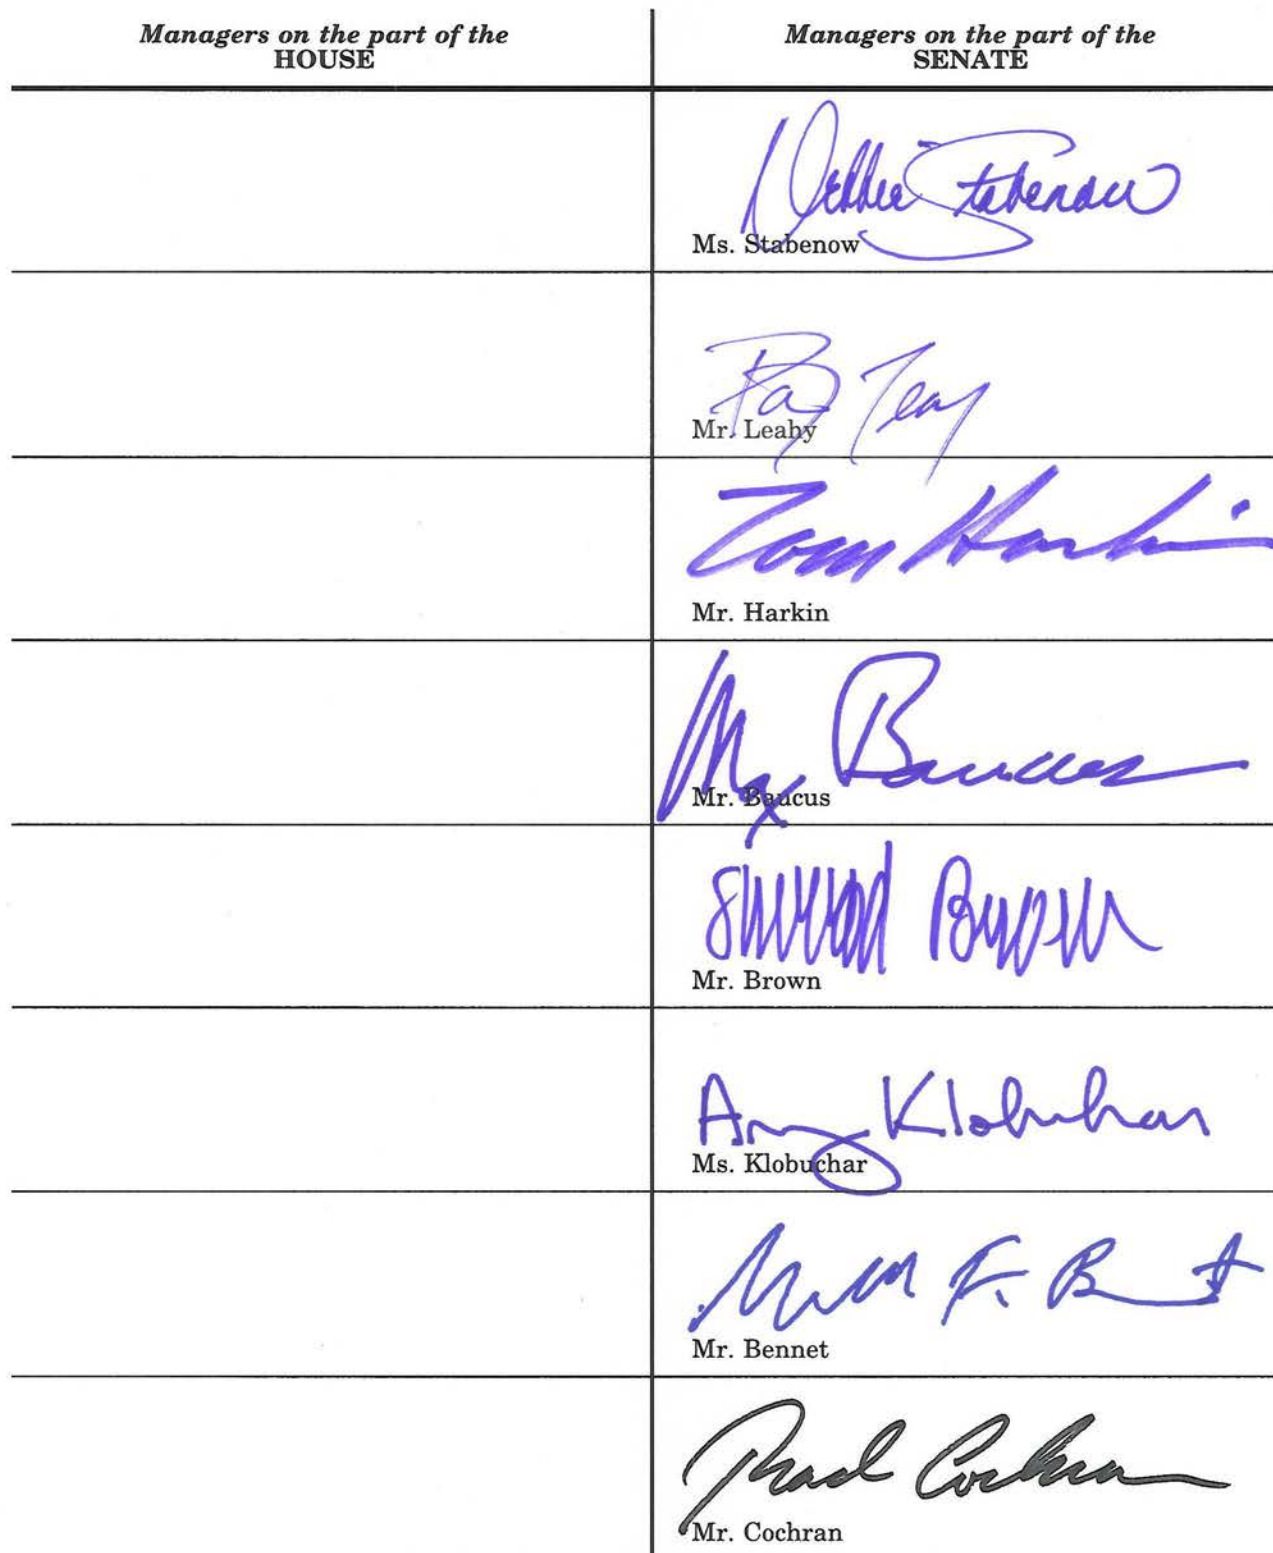 Managers on the part of the
HOUSE
Managers on the part of the
SENATE
Debbie Stabenow
Ms. Stabenow
Mr. Leahy
Tom Harkin
Mr. Harkin
Max Baucus
Mr. Baucus
Sherrod Brown
Mr. Brown
Amy Klobuchar
Ms. Klobuchar
F. Bennet
Mr. Bennet
Thad Cochran
Mr. Cochran